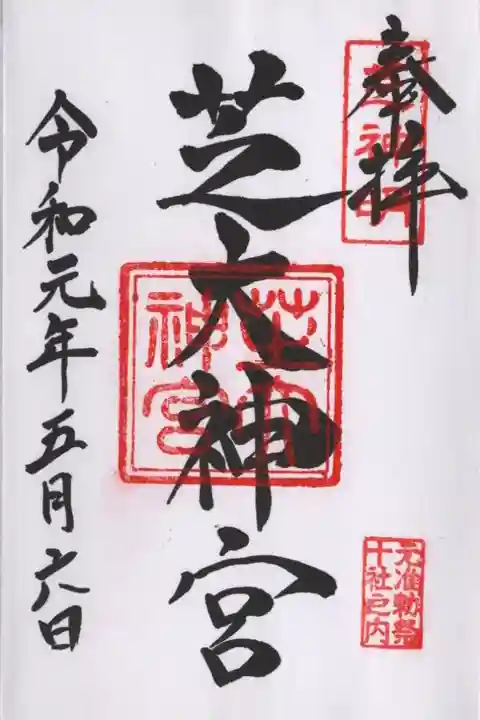 奉拝
芝神明
芝大神宮
芝大神宮
元准勅祭
十社之内
令和元年五月六日